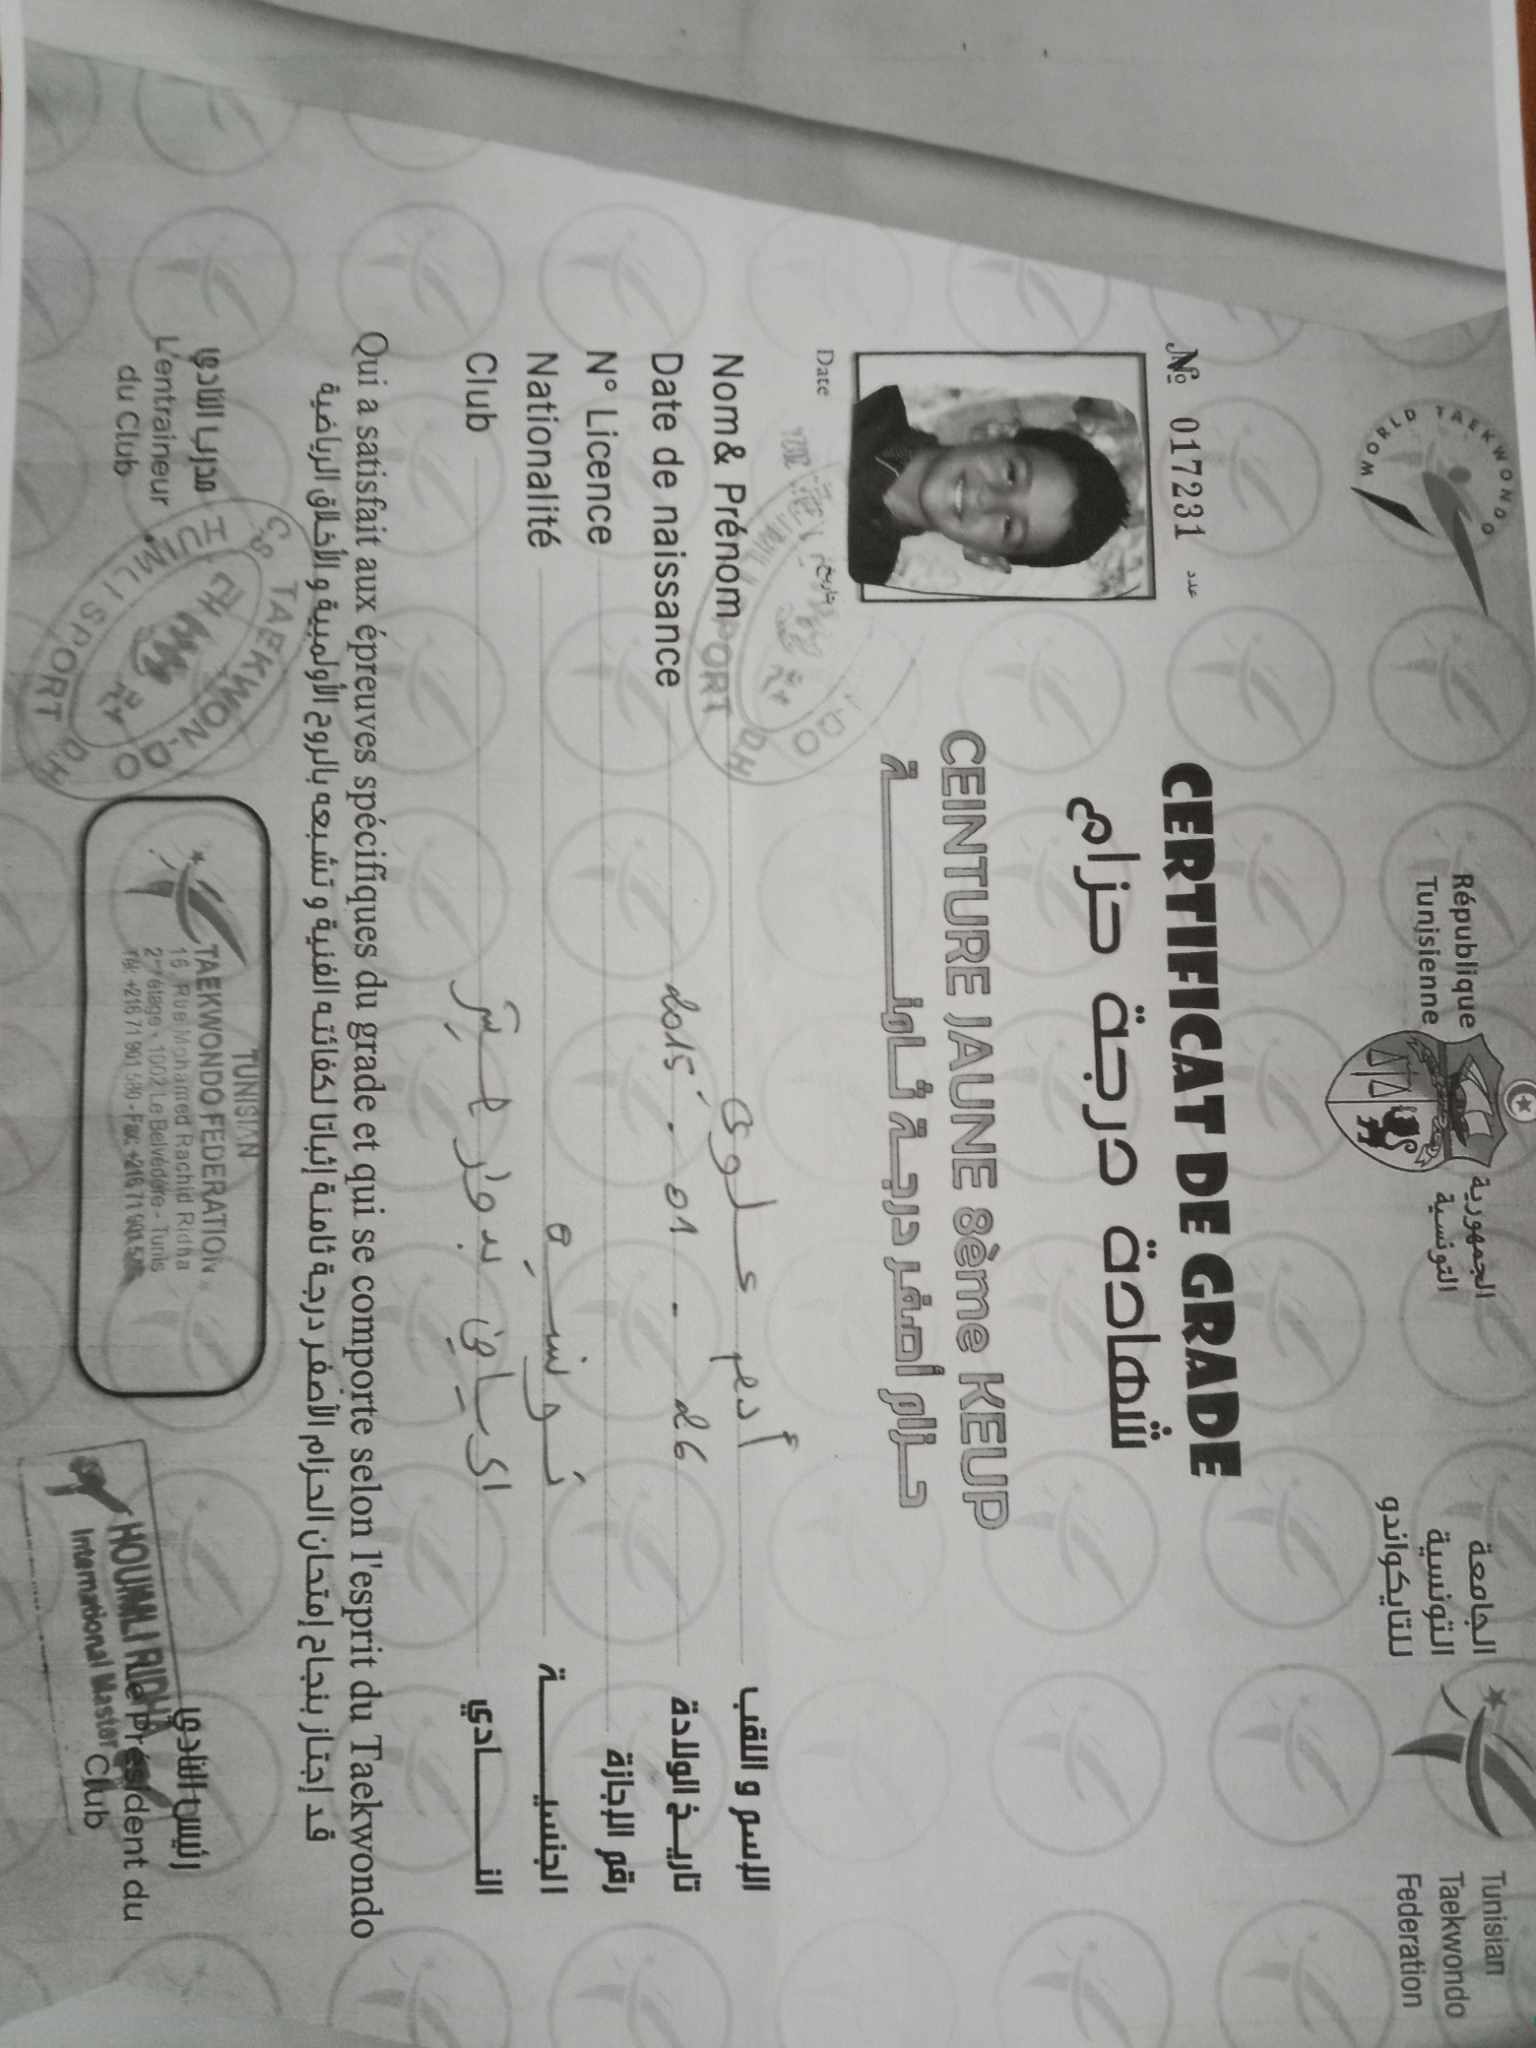 WORLD TAEKWONDO
République
Tunisienne
الجمهورية
التونسية
الجامعة
التونسية
للتايكواندو
Tunisian
Taekwondo
Federation
№ 017231 عدد
CERTIFICAT DE GRADE
شهادة درجة حزام
CEINTURE JAUNE 8ème KEUP
حزام أصفر درجة ثامنة
Date تاريخ
Nom& Prénom أدم علوي الإسم و اللقب
Date de naissance 2015 - 01 - 26 تاريخ الولادة
N° Licence رقم الإجازة
Nationalité تونسية الجنسية
Club النادي
Qui a satisfait aux épreuves spécifiques du grade et qui se comporte selon l'esprit du Taekwondo
قد إجتاز بنجاح إمتحان الحزام الأصفر درجة ثامنة إثباتا لكفائته الفنية و تشبعه بالروح الأولمبية و الأخلاق الرياضية
مدرب النادي
L'entraineur
du Club
C.S. TAEKWON-DO
HUMLI SPORT D.H
TUNISIAN
TAEKWONDO FEDERATION
16, Rue Mohamed Rachid Ridha
2ème étage - 1002 Le Belvédère - Tunis
Tél: +216 71 901 580 - Fax: +216 71 901
رئيس النادي
Le Président du
Club
HOUMLI RIDHA
International Master